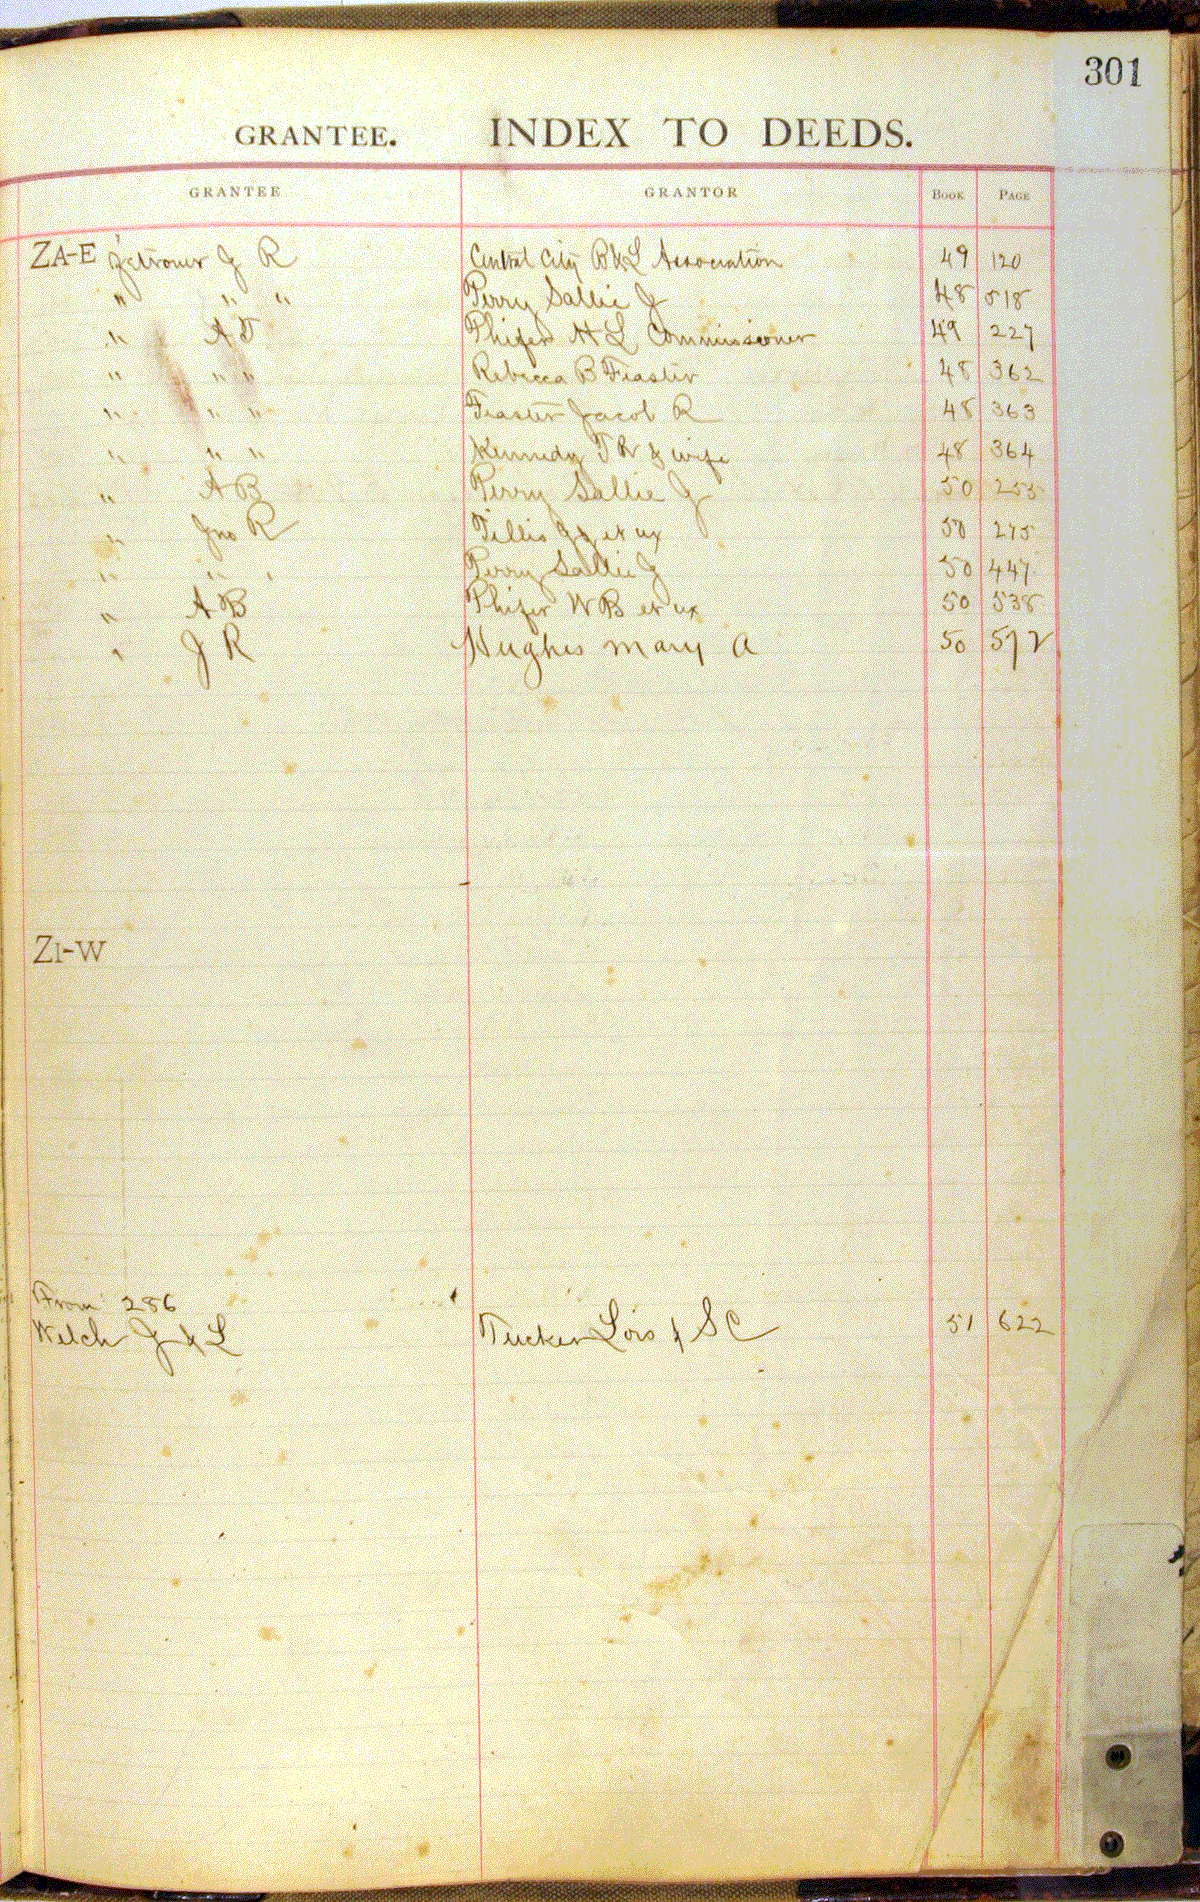 301
GRANTEE. INDEX TO DEEDS.
GRANTEE GRANTOR BOOK PAGE
ZA-E Zetrouer J R Central City B & L Association 49 120
" " " Perry Sallie J 48 518
" A T Phifer H L Commissioner 49 227
" " " Rebecca B Feaster 48 362
" " " Feaster Jacob R 48 363
" " " Kennedy T R & wife 48 364
" A B Perry Sallie J 50 255
" Jno R Tillis et ux 50 275
" " " Perry Sallie J 50 447
" A B Phifer W B et ux 50 538
" J R Hughes Mary A 50 572
ZI-W
From 286
Welch J & L Tucker Lois & S C 51 622